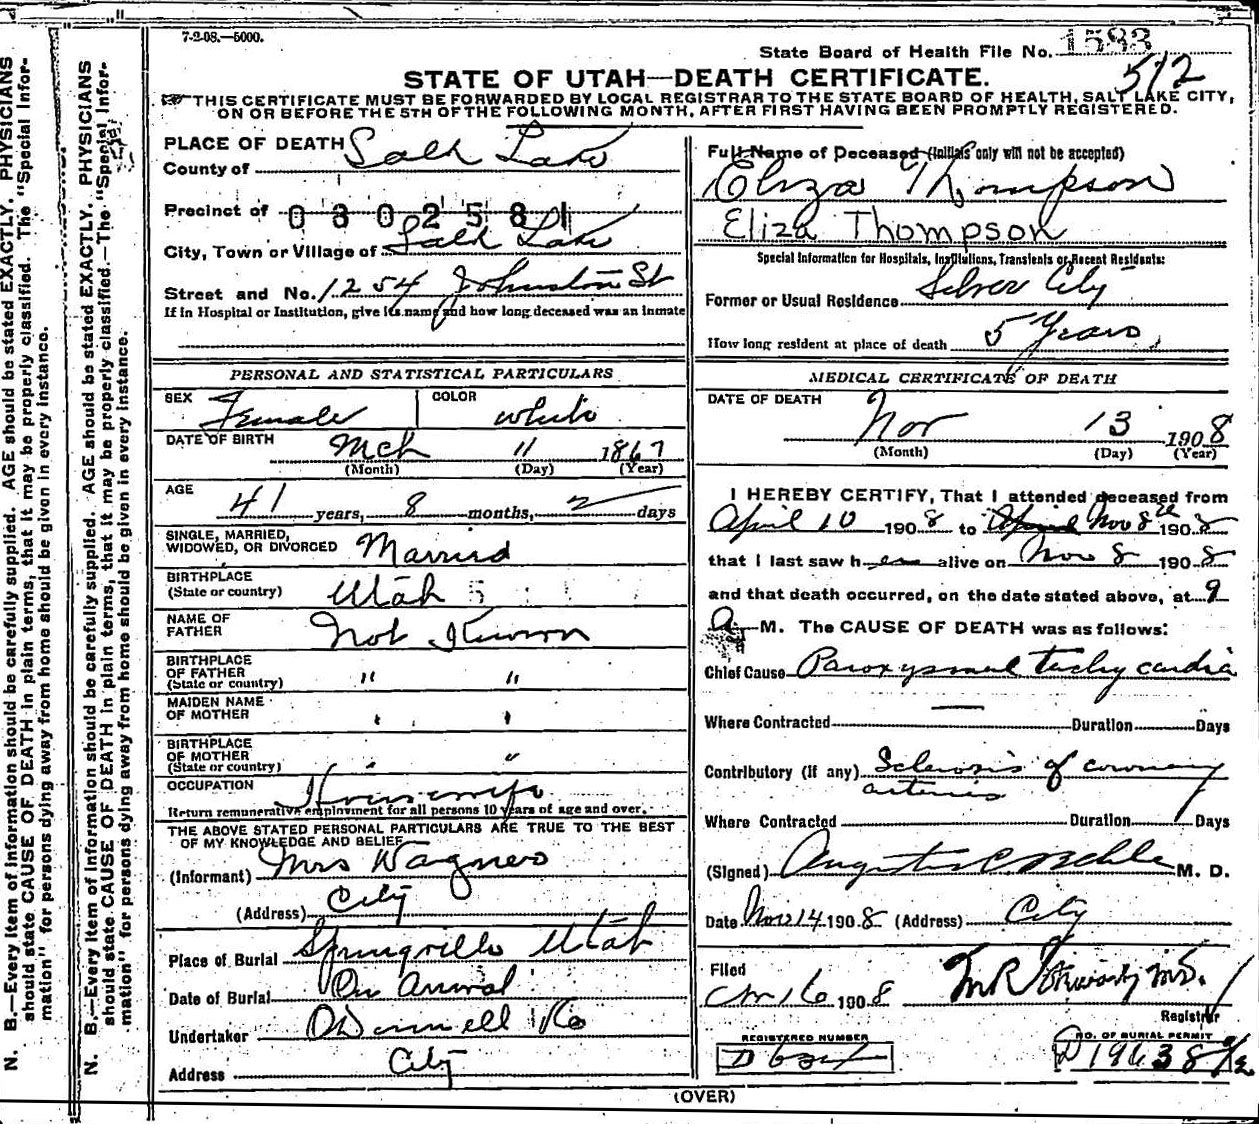 7-2-08.—5000.
State Board of Health File No. 1583
512
STATE OF UTAH—DEATH CERTIFICATE.
THIS CERTIFICATE MUST BE FORWARDED BY LOCAL REGISTRAR TO THE STATE BOARD OF HEALTH, SALT LAKE CITY,
ON OR BEFORE THE 5TH OF THE FOLLOWING MONTH, AFTER FIRST HAVING BEEN PROMPTLY REGISTERED.
PLACE OF DEATH
County of Salt Lake
Precinct of 0302581
City, Town or Village of Salt Lake
Street and No. 1254 Johnston St
If in Hospital or Institution, give its name and how long deceased was an inmate
Full Name of Deceased (Initials only will not be accepted)
Eliza Thompson
Eliza Thompson
Special Information for Hospitals, Institutions, Transients or Recent Residents:
Former or Usual Residence Silver City
How long resident at place of death 5 Years
PERSONAL AND STATISTICAL PARTICULARS
SEX Female COLOR White
DATE OF BIRTH Mch 11 1867
(Month) (Day) (Year)
AGE 41 years, 8 months, 2 days
SINGLE, MARRIED,
WIDOWED, OR DIVORCED Married
BIRTHPLACE
(State or country) Utah 5
NAME OF
FATHER Not Known
BIRTHPLACE
OF FATHER
(State or country) " "
MAIDEN NAME
OF MOTHER " "
BIRTHPLACE
OF MOTHER
(State or country) " "
OCCUPATION Housewife
Return remunerative employment for all persons 10 years of age and over.
THE ABOVE STATED PERSONAL PARTICULARS ARE TRUE TO THE BEST
OF MY KNOWLEDGE AND BELIEF
(Informant) Mrs Wagner
(Address) City
Place of Burial Springville Utah
Date of Burial On Arrival
Undertaker O'Donnell & Co
Address City
MEDICAL CERTIFICATE OF DEATH
DATE OF DEATH
Nov 13 1908
(Month) (Day) (Year)
I HEREBY CERTIFY, That I attended deceased from
April 10 1908 to April Nov 8 1908
that I last saw her alive on Nov 8 1908
and that death occurred, on the date stated above, at 9
A M. The CAUSE OF DEATH was as follows:
Chief Cause Paroxysmal tachycardia
Where Contracted — Duration Days
Contributory (if any) Sclerosis of coronary
arteries
Where Contracted Duration Days
(Signed) M. D.
Date Nov 14 1908 (Address) City
Filed
16 1908
Registrar
REGISTERED NUMBER
D
NO. OF BURIAL PERMIT
D19638
(OVER)
N. B.—Every item of information should be carefully supplied. AGE should be stated EXACTLY. PHYSICIANS
should state CAUSE OF DEATH in plain terms, that it may be properly classified. The "Special Infor-
mation" for persons dying away from home should be given in every instance.
N. B.—Every item of information should be carefully supplied. AGE should be stated EXACTLY. PHYSICIANS
should state CAUSE OF DEATH in plain terms, that it may be properly classified.—The "Special Infor-
mation" for persons dying away from home should be given in every instance.